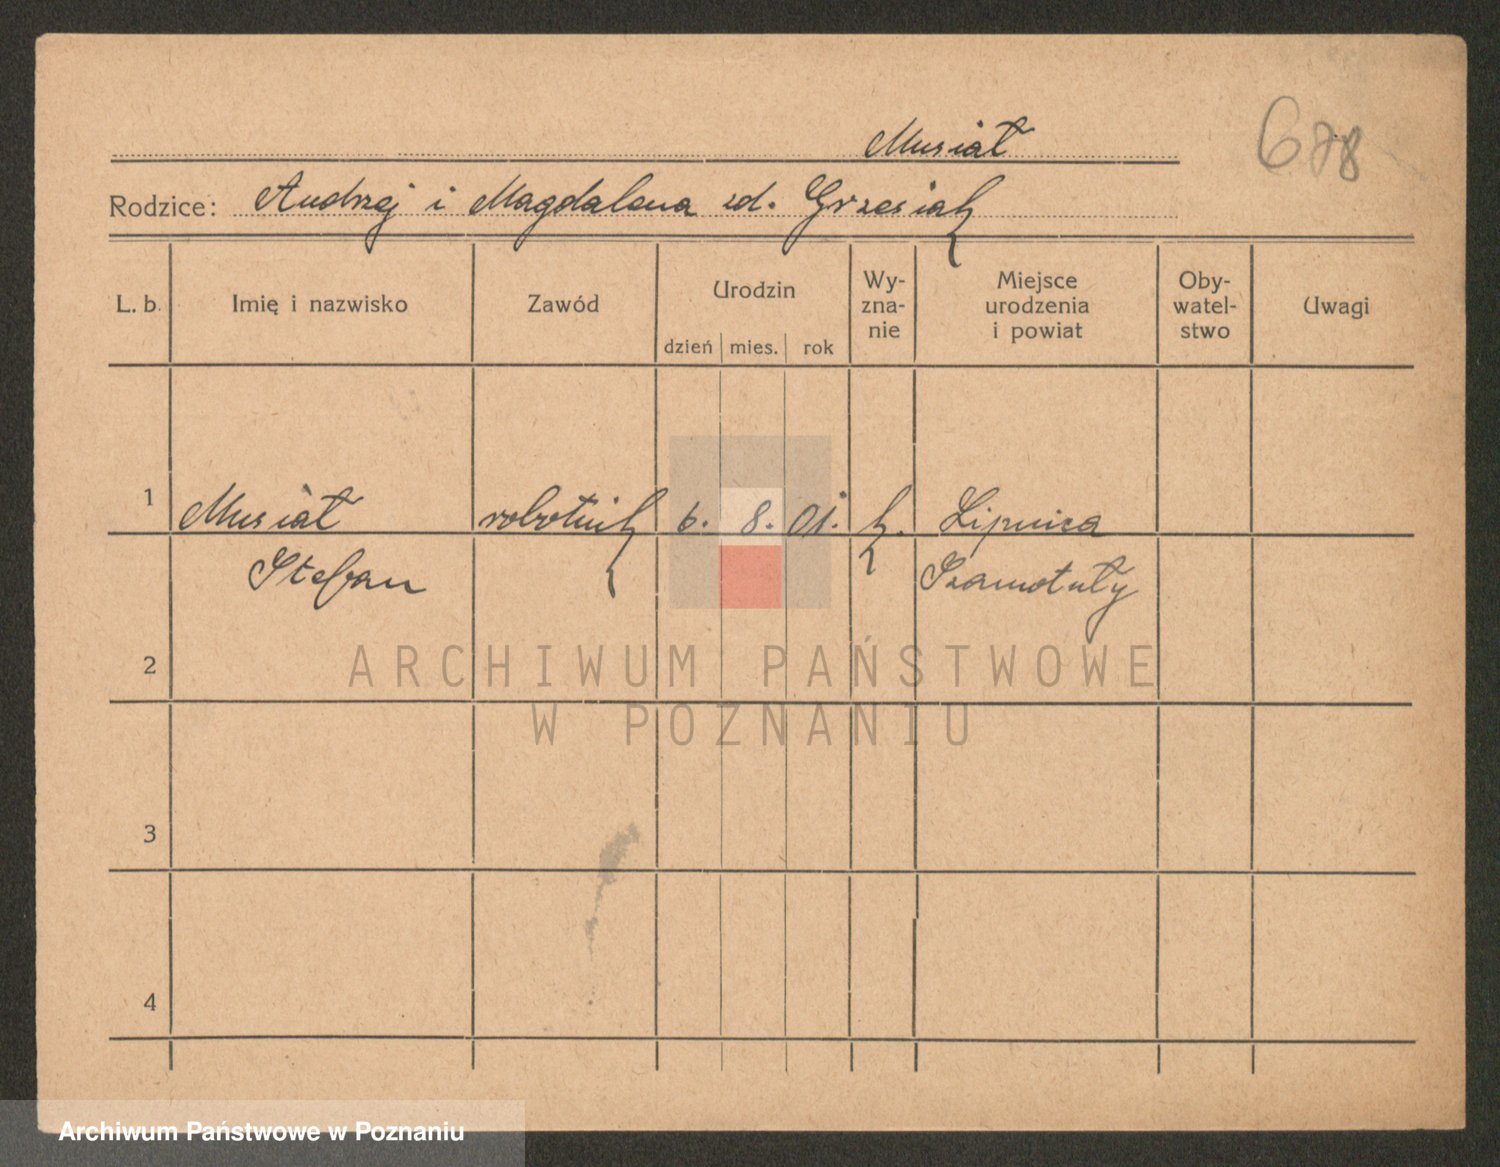 Musiał
678
Rodzice: Andrzej i Magdalena zd. Grzesiak
L. b. Imię i nazwisko Zawód Urodzin dzień mies. rok Wy-zna-nie Miejsce urodzenia i powiat Oby-watel-stwo Uwagi
1 Musiał robotnik 6. 8. 01. k. Lipnica
Stefan Szamotuły
2
ARCHIWUM PAŃSTWOWE
W POZNANIU
3
4
Archiwum Państwowe w Poznaniu